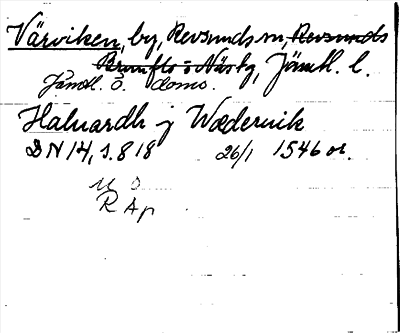 Värviken, by, Revsunds sn, Revsunds
Brunflo o Näs tg, Jämtl. l.
Jämtl. ö. doms.
Halvardh j Wædervik
DN 14, s. 818 26/1 1546 or.
U O
R Ap